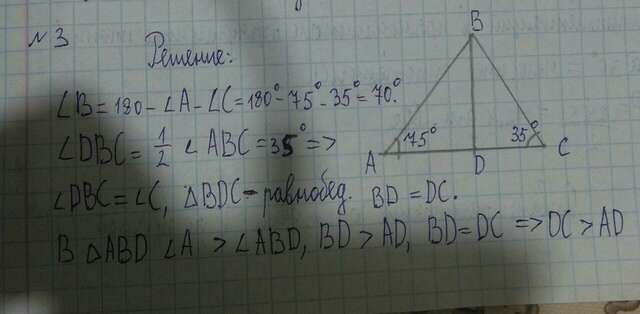 № 3
Решение:
∠B = 180 - ∠A - ∠C = 180° - 75° - 35° = 70°.
∠DBC = 1/2 ∠ ABC = 35° =>
∠DBC = ∠C, △BDC - равнобед. BD = DC.
В △ABD ∠A > ∠ABD, BD > AD, BD = DC => DC > AD
B
75°
35°
A
D
C